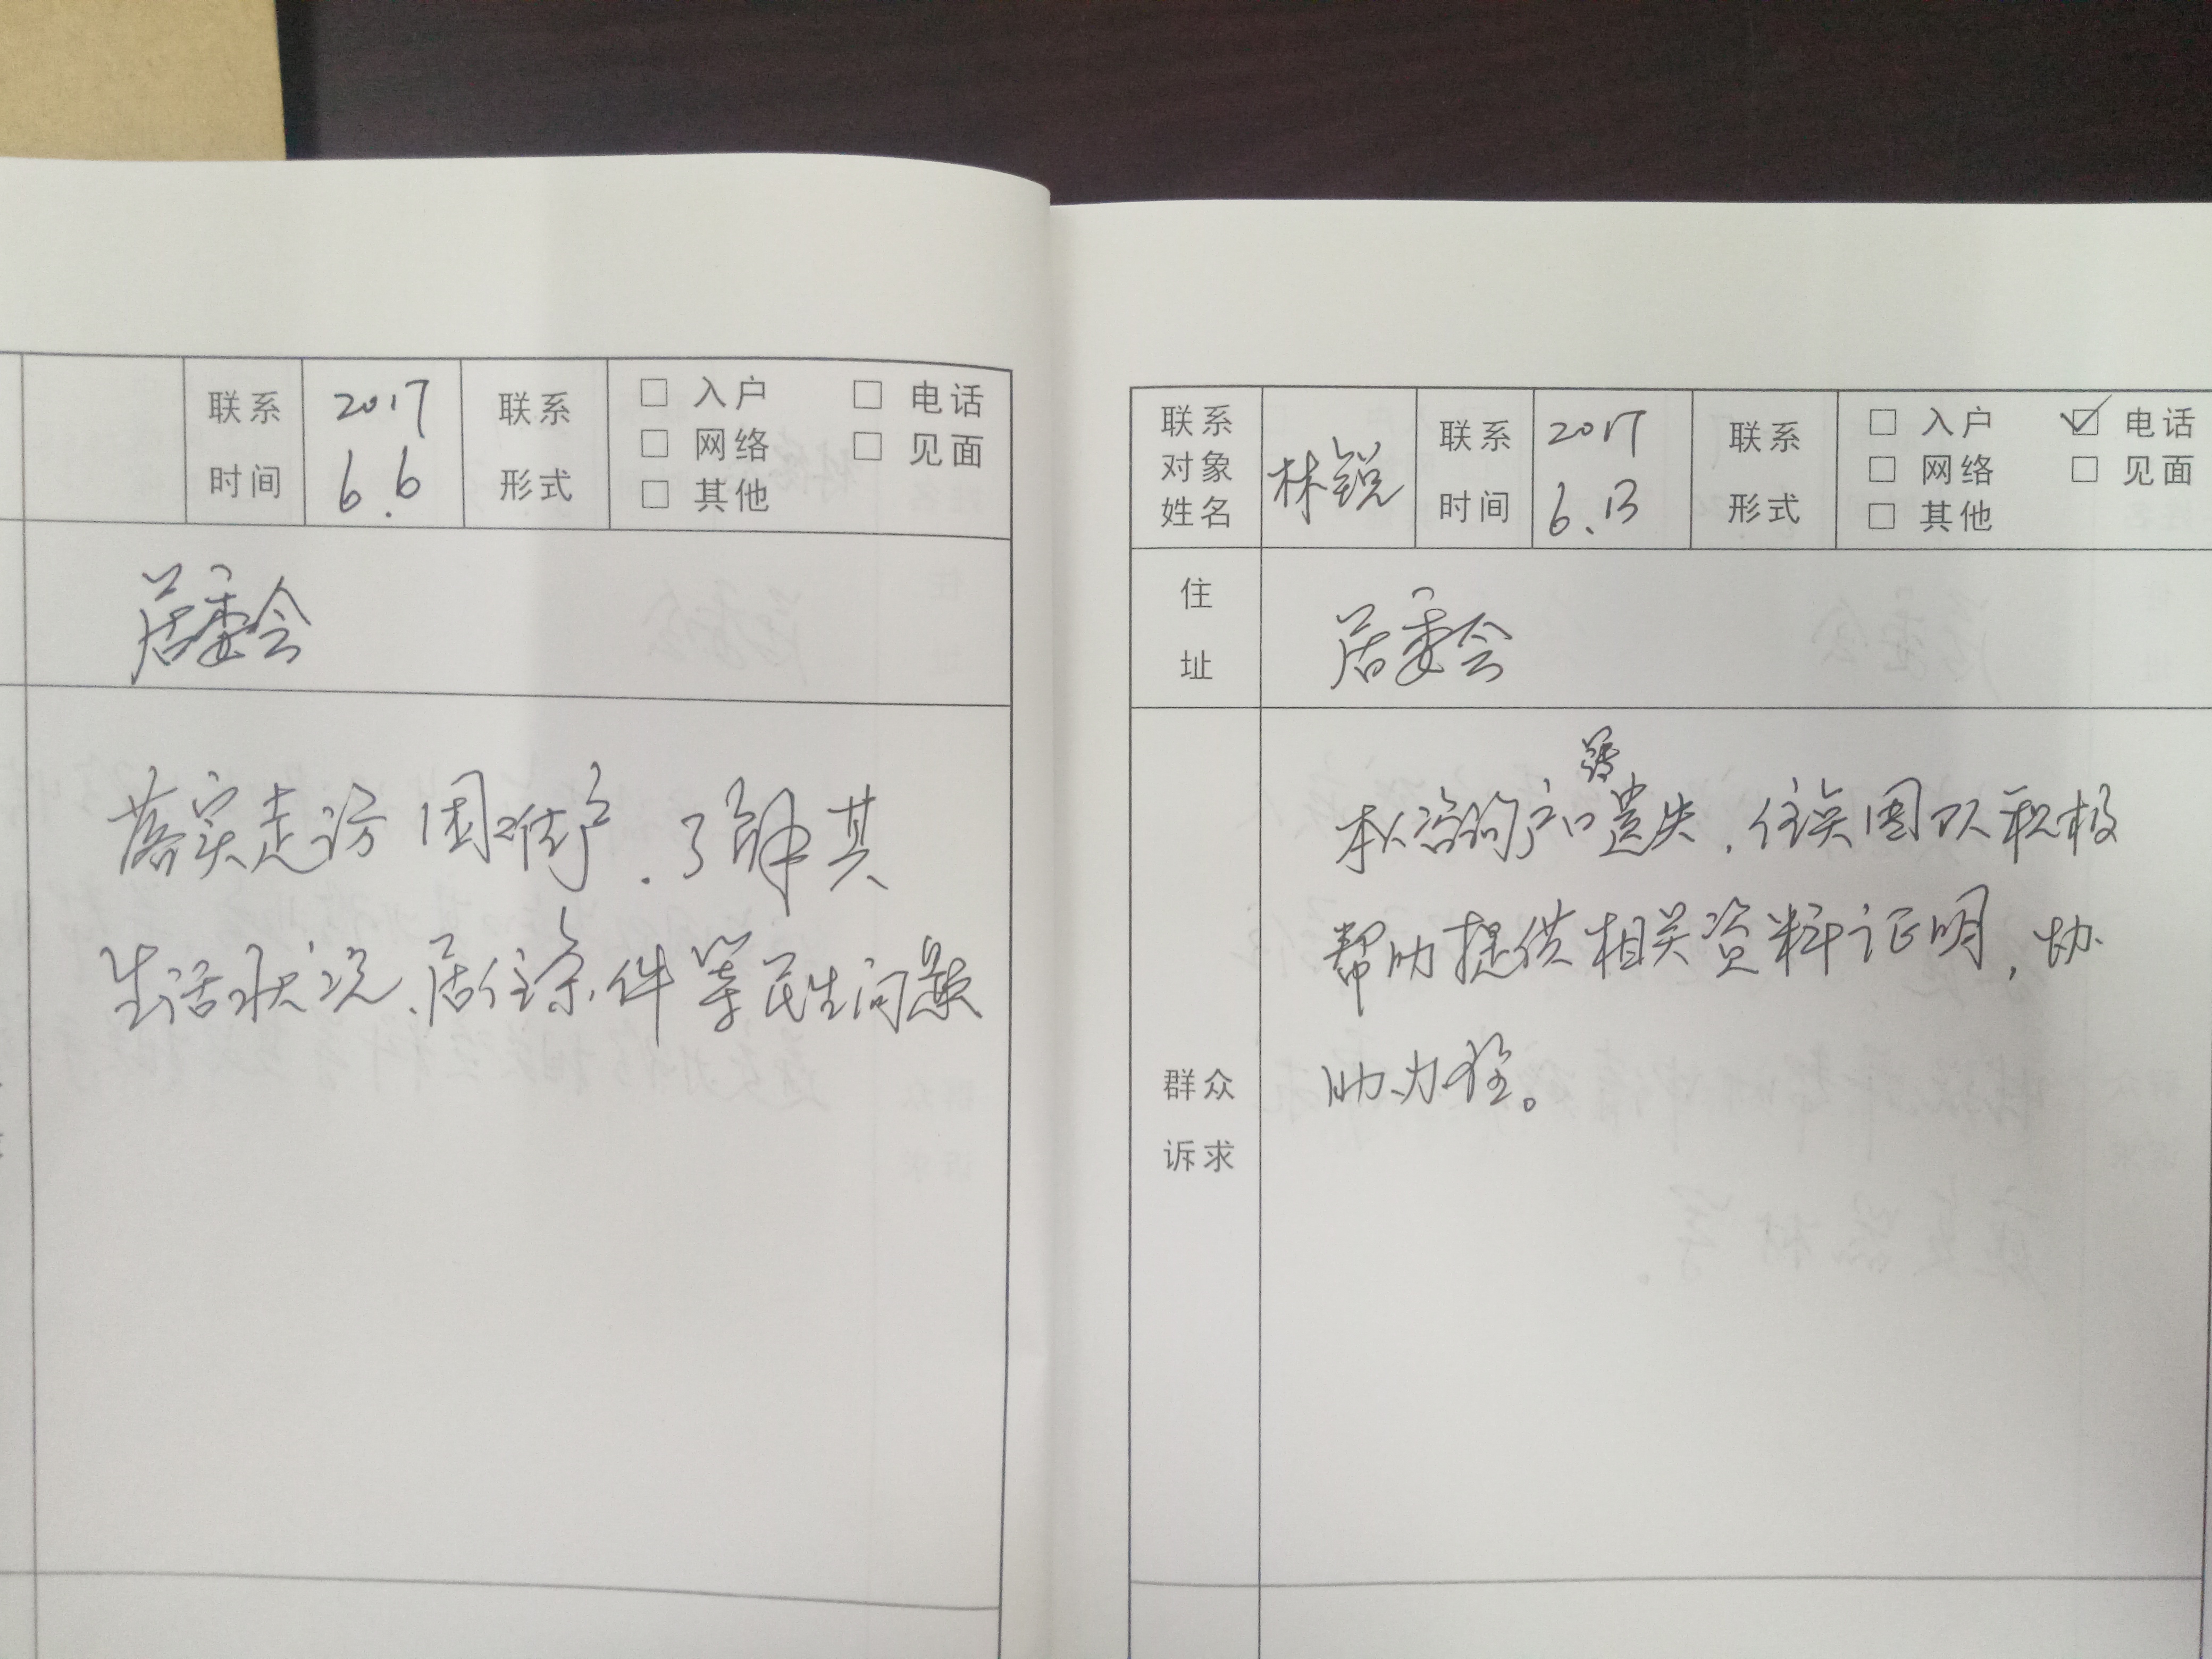 联系 时间 2017 6.6 联系 形式 □ 入户 □ 电话
□ 网络 □ 见面
□ 其他
居委会
落实走访困难户.了解其
生活状况、居住条件等民生问题
联系 对象 姓名 林锐 联系 时间 2017 6.13 联系 形式 □ 入户 ☑ 电话
□ 网络 □ 见面
□ 其他
住 址 居委会
群众 诉求
本人咨询户口簿遗失,
积极
帮助提供相关资料证明,协
助办理。